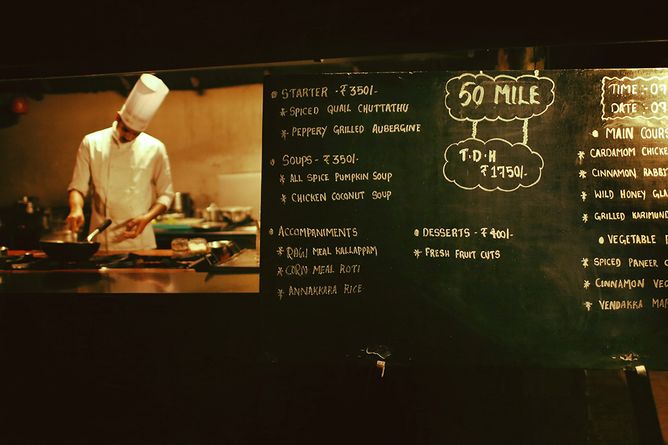 * STARTER - ₹350/-
* SPICED QUAIL CHUTTATHU
* PEPPERY GRILLED AUBERGINE
* SOUPS - ₹350/-
* ALL SPICE PUMPKIN SOUP
* CHICKEN COCONUT SOUP
* ACCOMPANIMENTS
* RAGI MEAL KALLAPPAM
* CORN MEAL ROTI
* ANNAKKARA RICE
50 MILE
T.D.H
₹1750/-
* DESSERTS - ₹400/-
* FRESH FRUIT CUTS
TIME :- 07
DATE :- 09
* MAIN COURS
* CARDAMOM CHICKE
* CINNAMON RABB
* WILD HONEY GLA
* GRILLED KARIMUN
* VEGETABLE
* SPICED PANEER
* CINNAMON VEG
* VENDAKKA MA